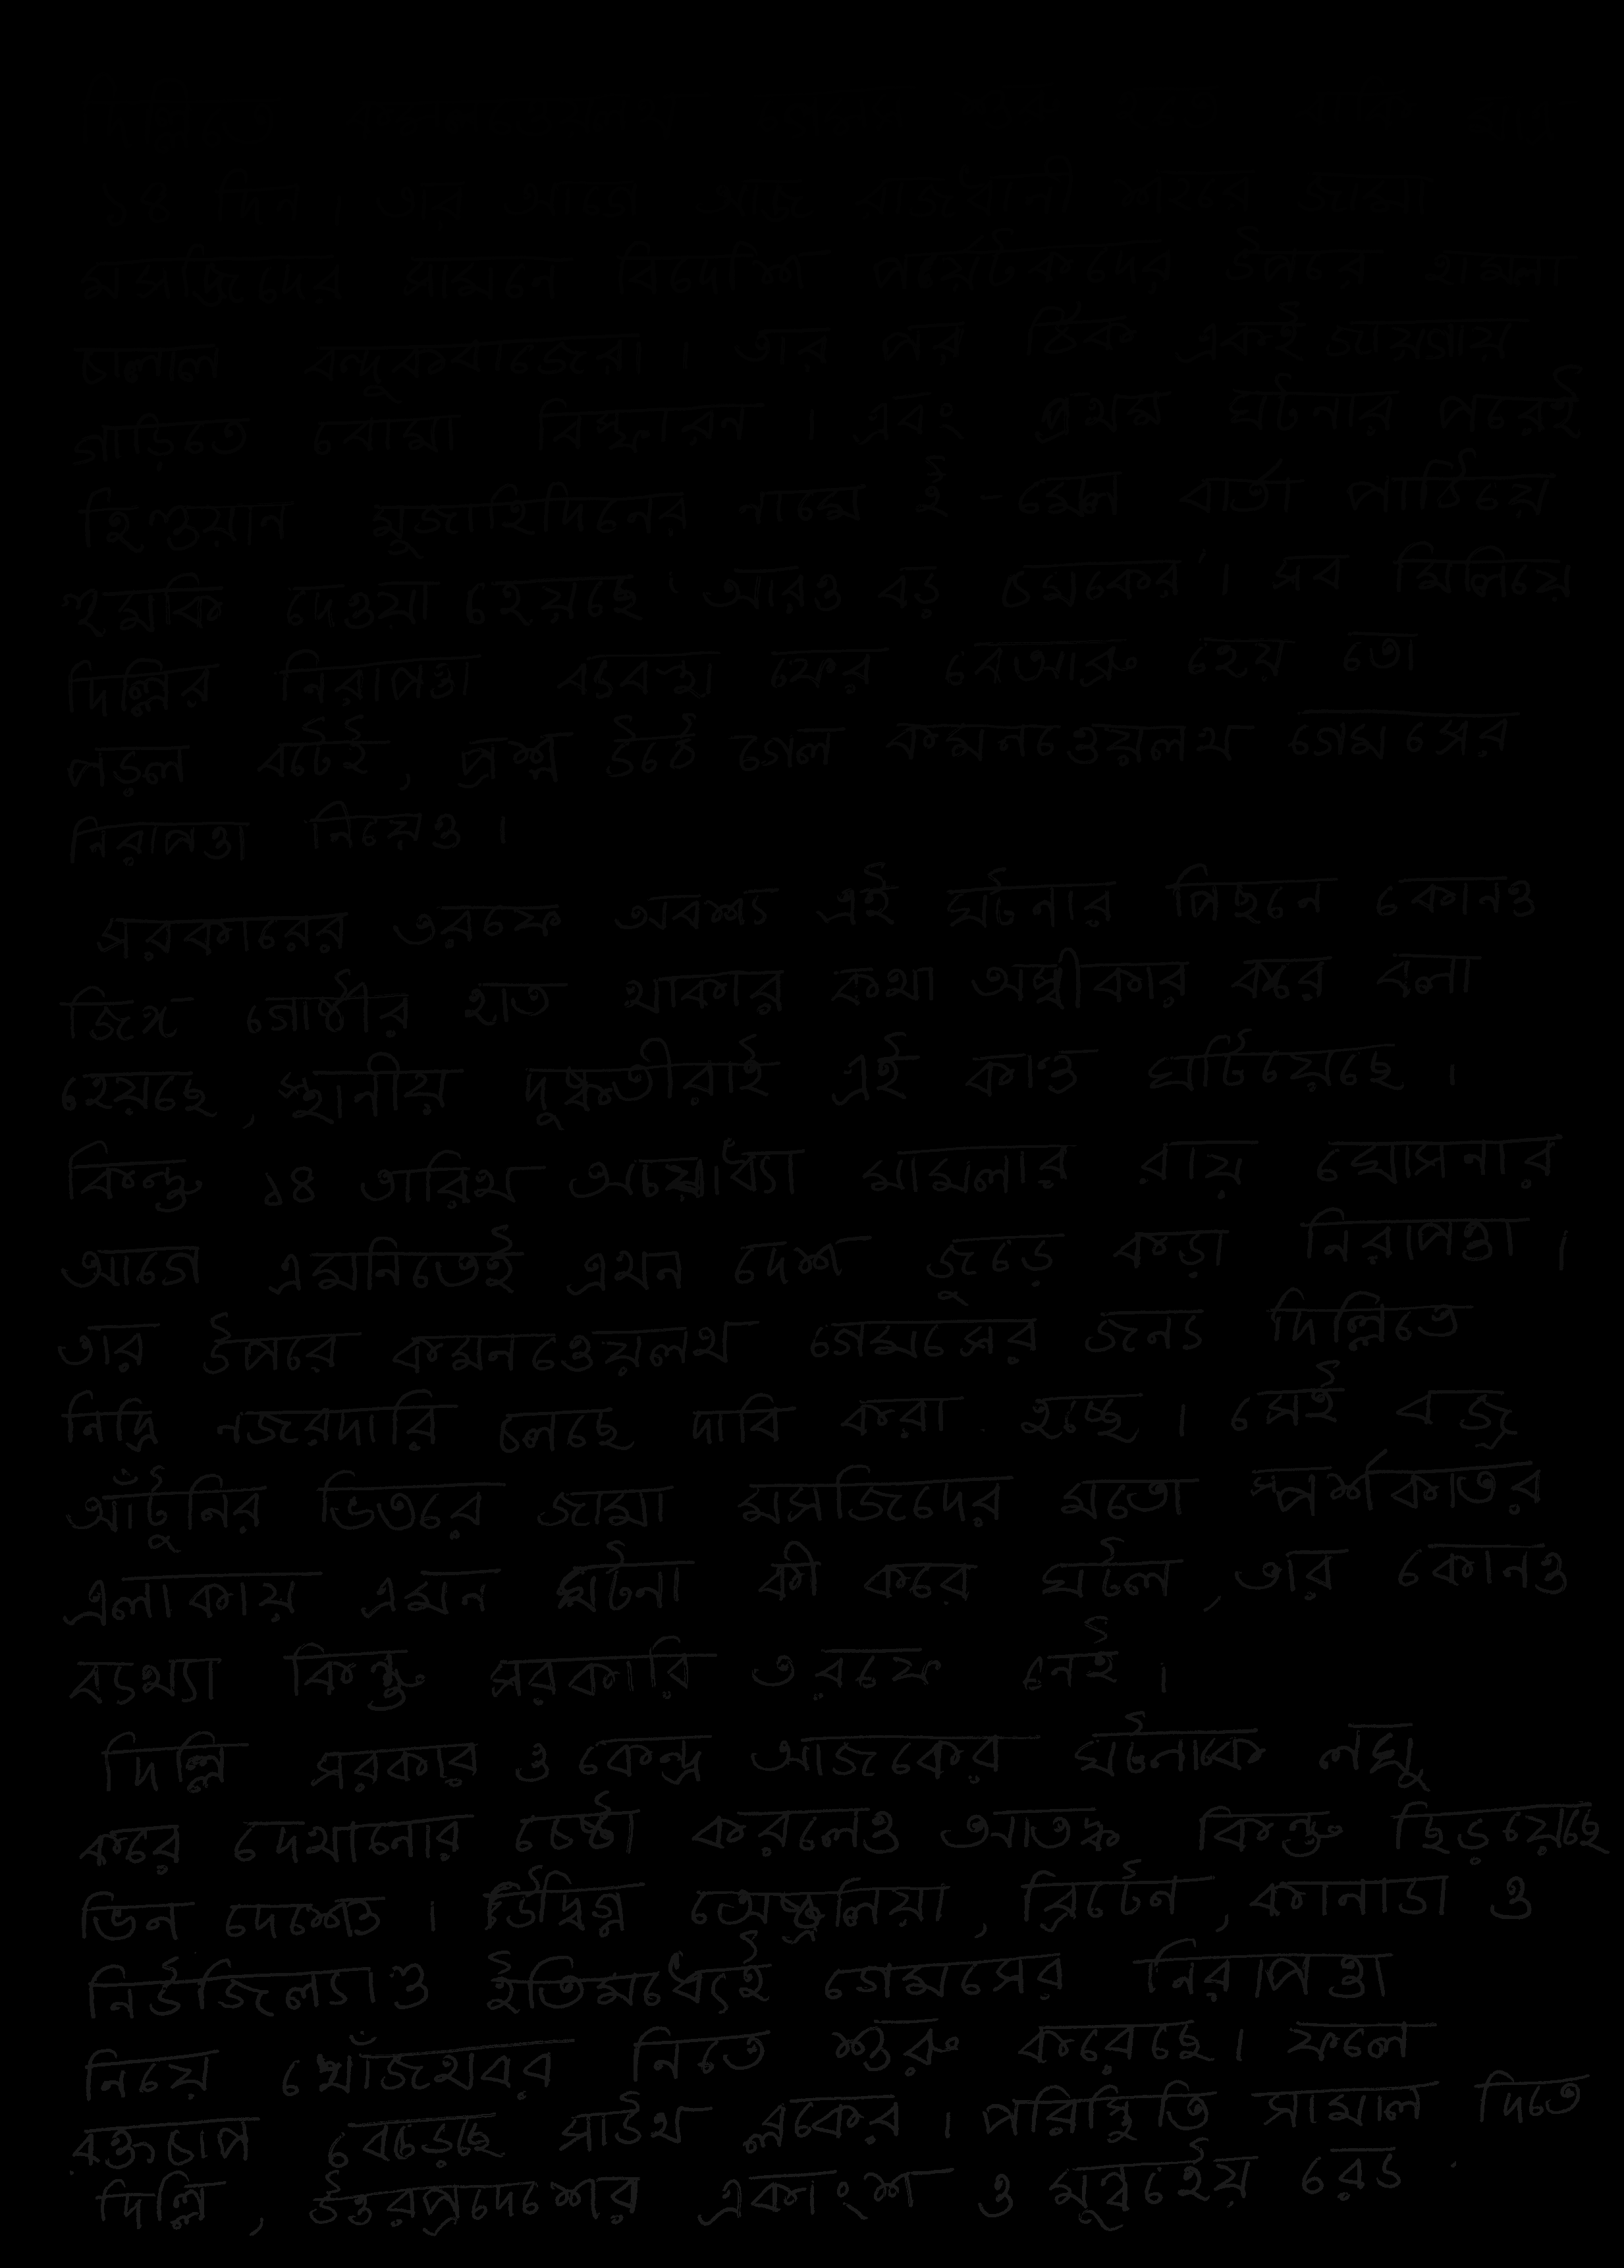 ১৫ দিন । তার আগে আজ রাজধানী শহরে জামা
মসজিদের সামনে বিদেশি পর্যটকদের উপরে হামলা
চালাল বন্দুকবাজেরা । তার পর ঠিক একই জায়গায়
গাড়িতে বোমা বিস্ফোরন । এবং প্রথম ঘটনার পরেই
ইণ্ডিয়ান মুজাহিদিনের নামে ই - মেল বার্তা পাঠিয়ে
হুমকি দেওয়া হয়েছে ‘ আরও বড় চমকের ’ । সব মিলিয়ে
দিল্লির নিরাপত্তা ব্যবস্থা ফের বেআব্রু হয়ে তো
পড়ল বটেই , প্রশ্ন উঠে গেল কমনওয়েলথ গেমসের
নিরাপত্তা নিয়েও ।
সরকারের তরফে অবশ্য এই ঘটনার পিছনে কোনও
জঙ্গি গোষ্ঠীর হাত থাকার কথা অস্বীকার করে বলা
হয়েছে , স্থানীয় দুষ্কৃতীরাই এই কাণ্ড ঘটিয়েছে ।
কিন্তু ১৪ তারিখ অযোধ্যা মামলার রায় ঘোসনার
আগে এমনিতেই এখন দেশ জুড়ে কড়া নিরাপত্তা ।
তার উপরে কমনওয়েলথ গেমসের জন্য দিল্লিতে
নিদ্রি নজরদারি চলছে দাবি করা হচ্ছে । সেই বজ্র
আঁটুনির ভিতরে জামা মসজিদের মতো স্পর্শকাতর
এলাকায় এমন ঘটনা কী করে ঘটল , তার কোনও
ব্যখ্যা কিন্তু সরকারি তরফে নেই ।
দিল্লি সরকার ও কেন্দ্র আজকের ঘটনাকে লঘু
করে দেখানোর চেষ্টা করলেও আতঙ্ক কিন্তু ছড়িয়েছে
ভিন দেশেও । উদ্বিগ্ন অস্ট্রেলিয়া , ব্রিটেন , কানাডা ও
নিউজিল্যাণ্ড ইতিমধ্যেই গেমসের নিরাপত্তা
নিয়ে খোঁজখবর নিতে শুরু করেছে । ফলে
রক্তচাপ বেড়েছে সাউথ ব্লকের । পরিস্থিতি সামাল দিতে
দিল্লি , উত্তরপ্রদেশের একাংশ ও মুম্বইয়ে রেড